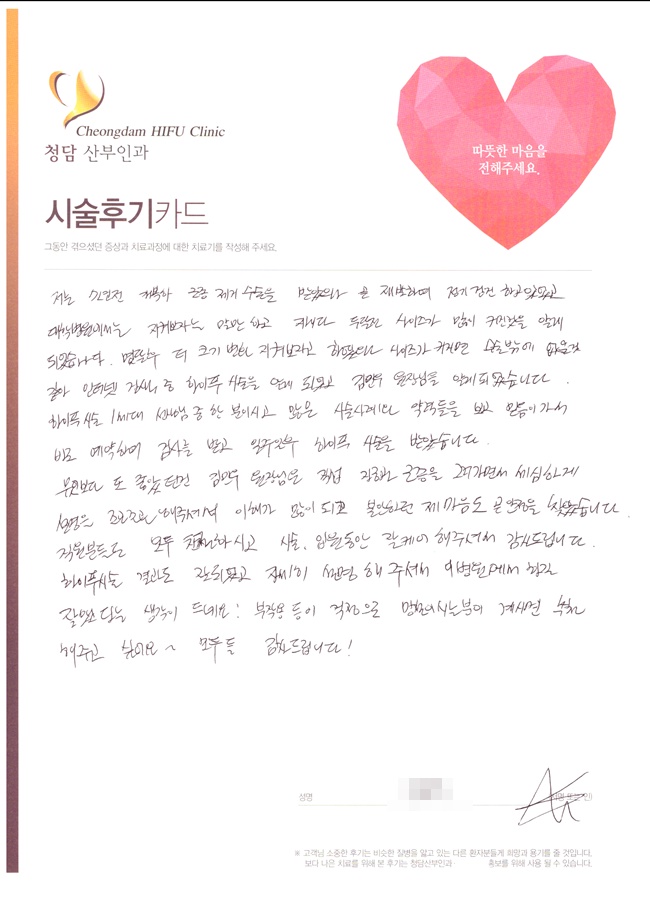 Cheongdam HIFU Clinic
청담 산부인과
따뜻한 마음을
전해주세요.
시술후기카드
그동안 겪으셨던 증상과 치료과정에 대한 치료기를 작성해 주세요.
저는 전 제거 수술을 받았으나 곧 재발하여 정기검진 하고 있었고
대학병원에서는 지켜보자는 말만 하고 사이즈가 많이 커진것을 알게
되었습니다. 더 크기 지켜보자고 사이즈가 커지면 수술밖에 없을것
같아 인터넷 검색 중 하이푸 시술을 알게 되었고 김민우 원장님을 알게되었습니다.
하이푸 시술 1세대 선생님 중 한 분이시고 많은 시술사례와 보고 믿음이 가서
바로 예약하여 검사를 받고 하이푸 시술을 받았습니다.
무엇보다 또 좋았던건 김민우 원장님은 직접 근종을 그려가면서 세심하게
설명을 해주셔서 이해가 많이 되고 불안하던 제 마음도 곧 안정을 찾았습니다.
직원분들도 모두 친절하시고 시술, 입원동안 잘 케어 해주셔서 감사드립니다.
하이푸시술 결과도 잘되었고 자세히 설명 해 주셔서 이병원에서 하길
잘했다는 생각이 드네요! 부작용 등이 걱정으로 망설이시는분이 계시면 추천
해주고 싶어요~ 모두들 감사드립니다!
성명
※ 고객님 소중한 후기는 비슷한 질병을 앓고 있는 다른 환자분들께 희망과 용기를 줄 것입니다.
보다 나은 치료를 위해 본 후기는 청담산부인과 홍보를 위해 사용 될 수 있습니다.